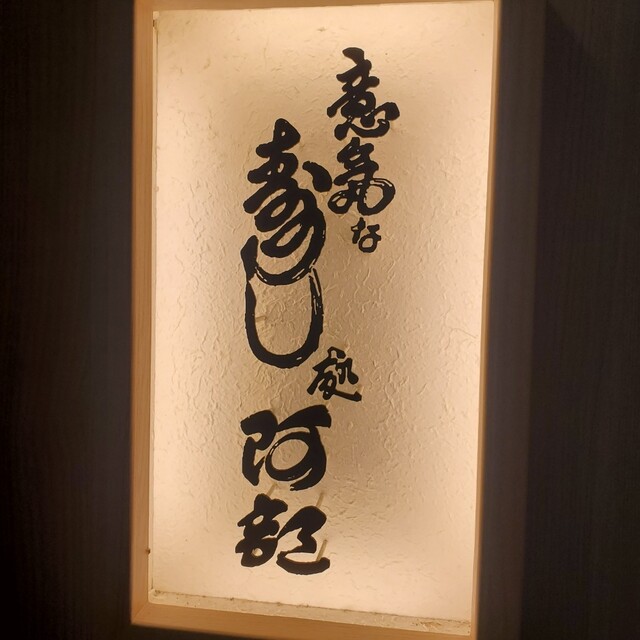 意氣な
寿し処
阿部